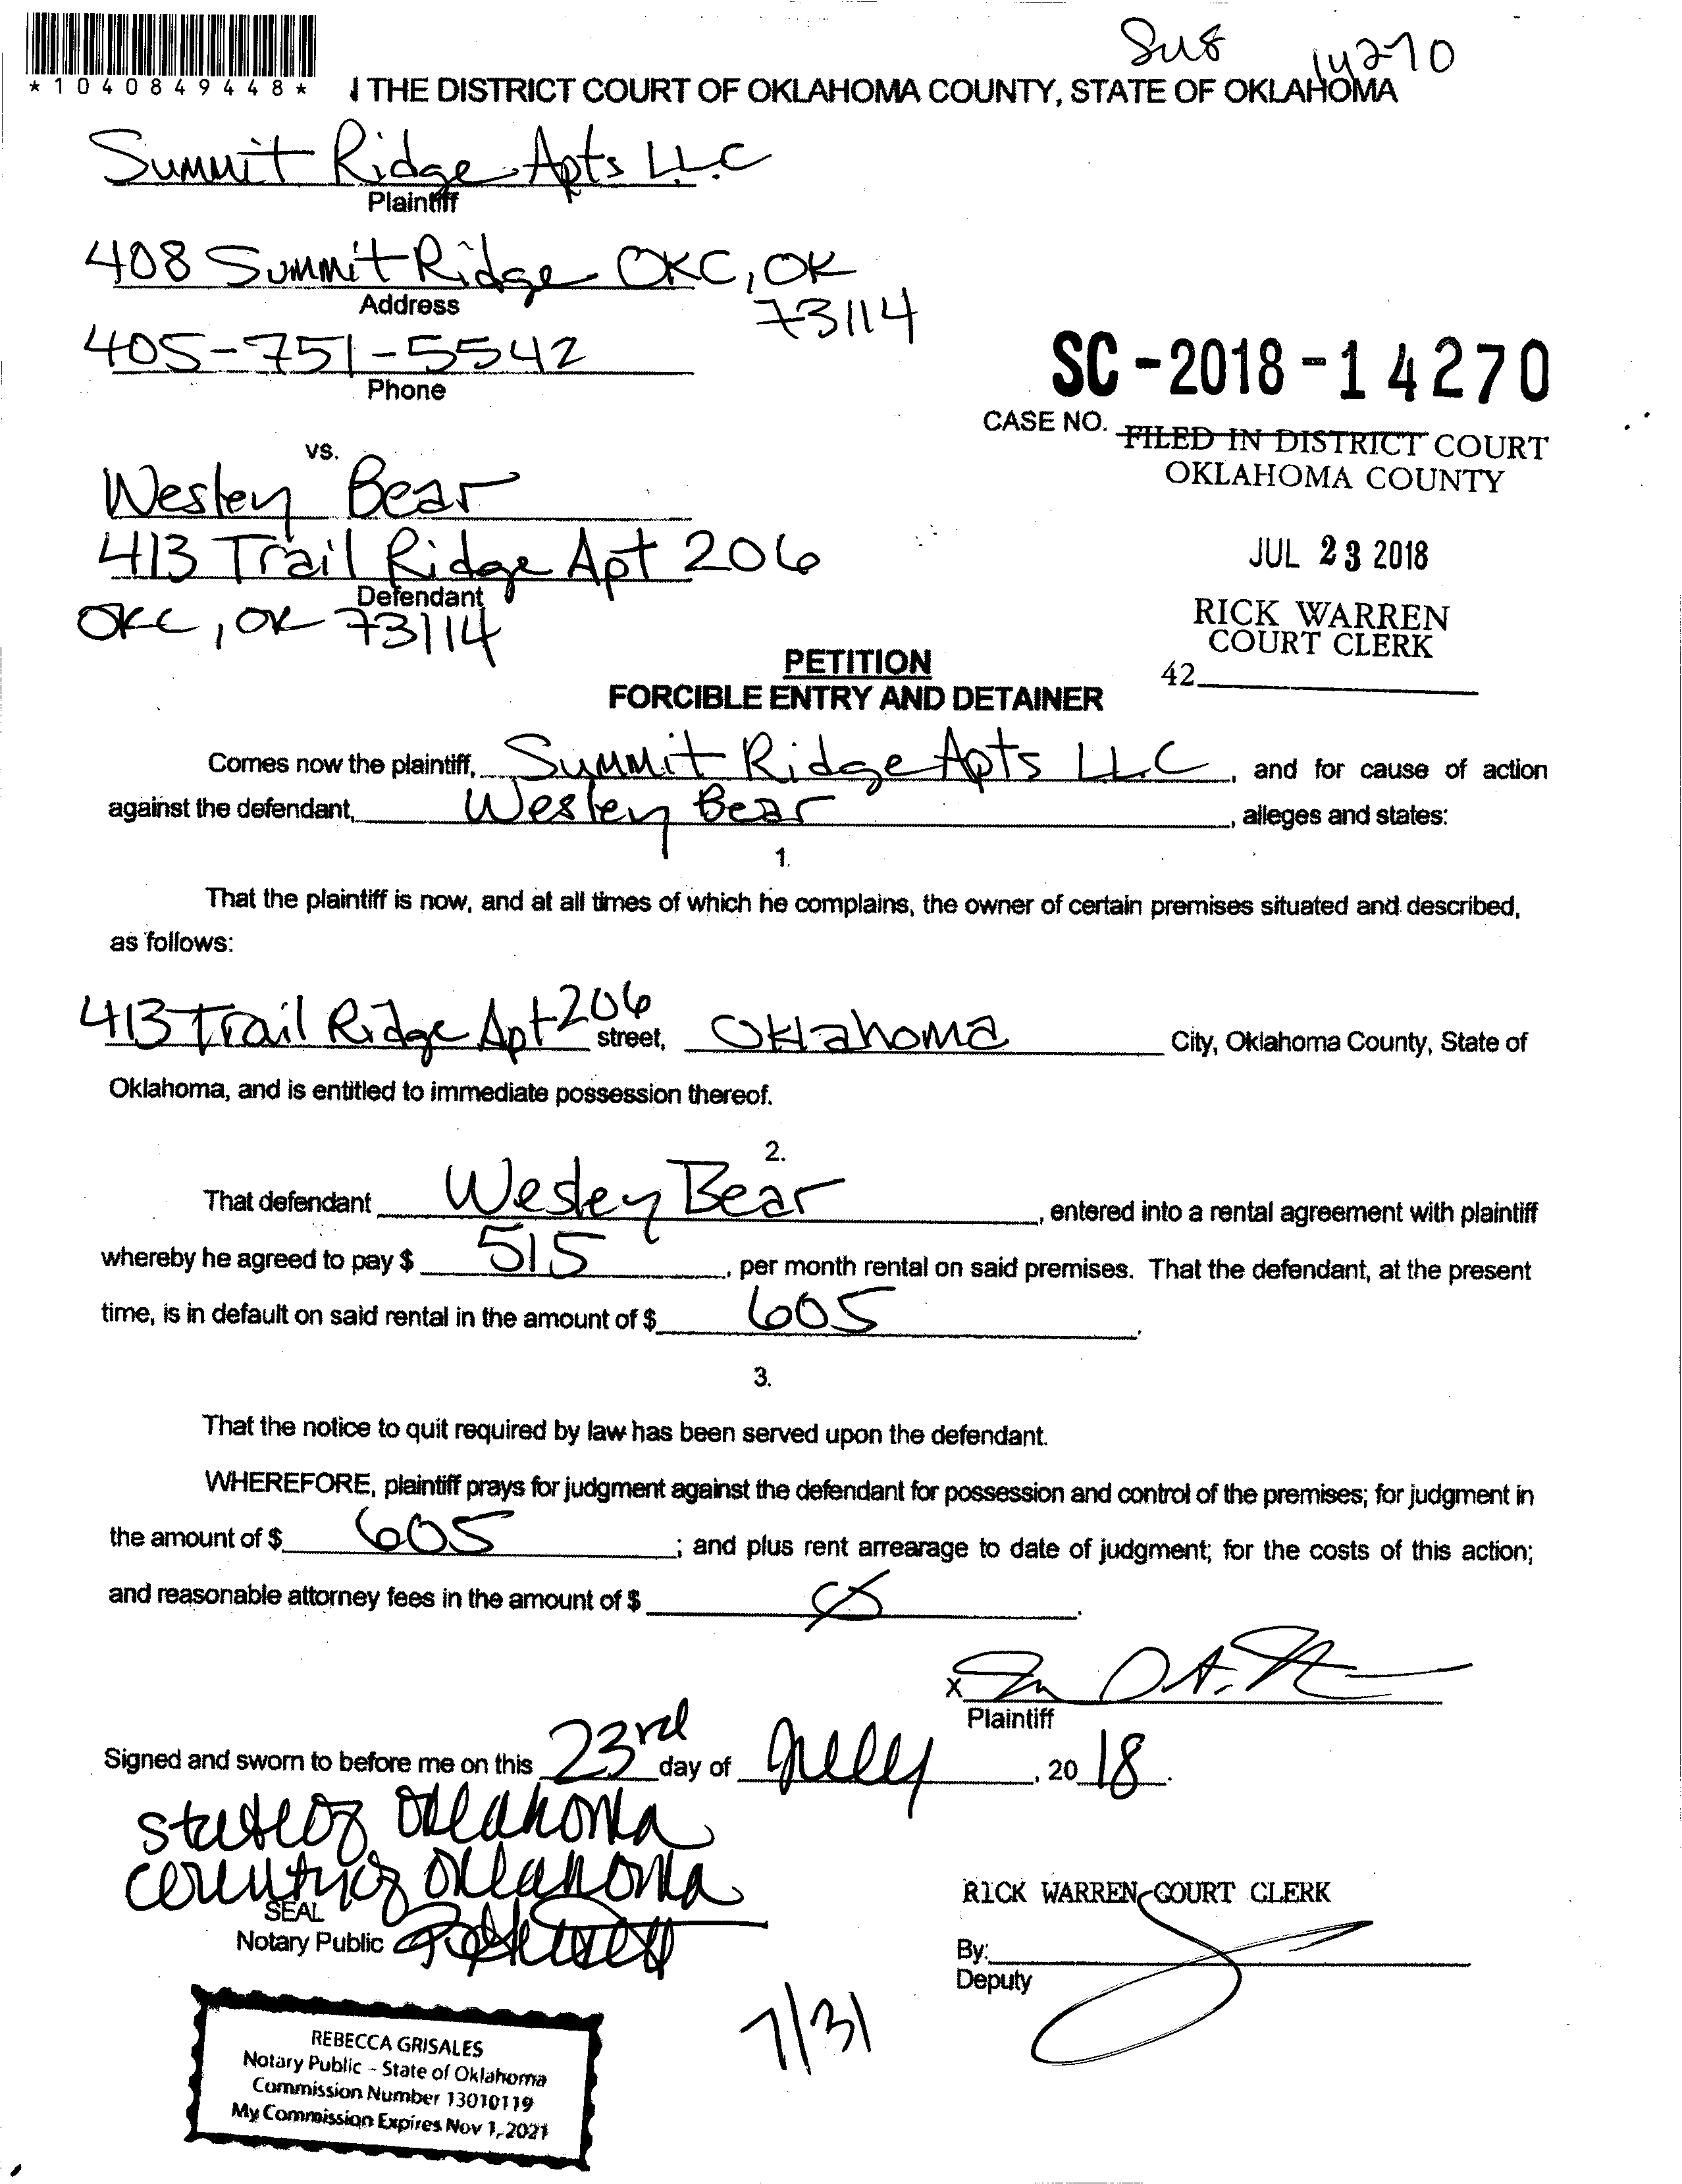 14270
*1040849448*
THE DISTRICT COURT OF OKLAHOMA COUNTY, STATE OF OKLAHOMA
Summit Ridge Apts LLC
Plaintiff
408 Summit Ridge OKC, OK
73114
Address
405-751-5542
Phone
SC-2018-14270
CASE NO.
FILED IN DISTRICT COURT
OKLAHOMA COUNTY
JUL 23 2018
RICK WARREN
COURT CLERK
42
vs.
Wesley Bear
413 Trail Ridge Apt 206
Defendant
OKC, OK 73114
PETITION
FORCIBLE ENTRY AND DETAINER
Comes now the plaintiff, Summit Ridge Apts LLC, and for cause of action
against the defendant, Wesley Bear, alleges and states:
1.
That the plaintiff is now, and at all times of which he complains, the owner of certain premises situated and described,
as follows:
413 Trail Ridge Apt 206 street, Oklahoma City, Oklahoma County, State of
Oklahoma, and is entitled to immediate possession thereof.
2.
That defendant Wesley Bear, entered into a rental agreement with plaintiff
whereby he agreed to pay $ 515, per month rental on said premises. That the defendant, at the present
time, is in default on said rental in the amount of $ 605.
3.
That the notice to quit required by law has been served upon the defendant.
WHEREFORE, plaintiff prays for judgment against the defendant for possession and control of the premises; for judgment in
the amount of $ 605; and plus rent arrearage to date of judgment; for the costs of this action;
and reasonable attorney fees in the amount of $ Ø.
X
Plaintiff
Signed and sworn to before me on this 23rd day of July, 2018.
state of Oklahoma
county of Oklahoma
SEAL
Notary Public
RICK WARREN COURT CLERK
By:
Deputy
7/31
REBECCA GRISALES
Notary Public - State of Oklahoma
Commission Number 13010119
My Commission Expires Nov 1, 2021